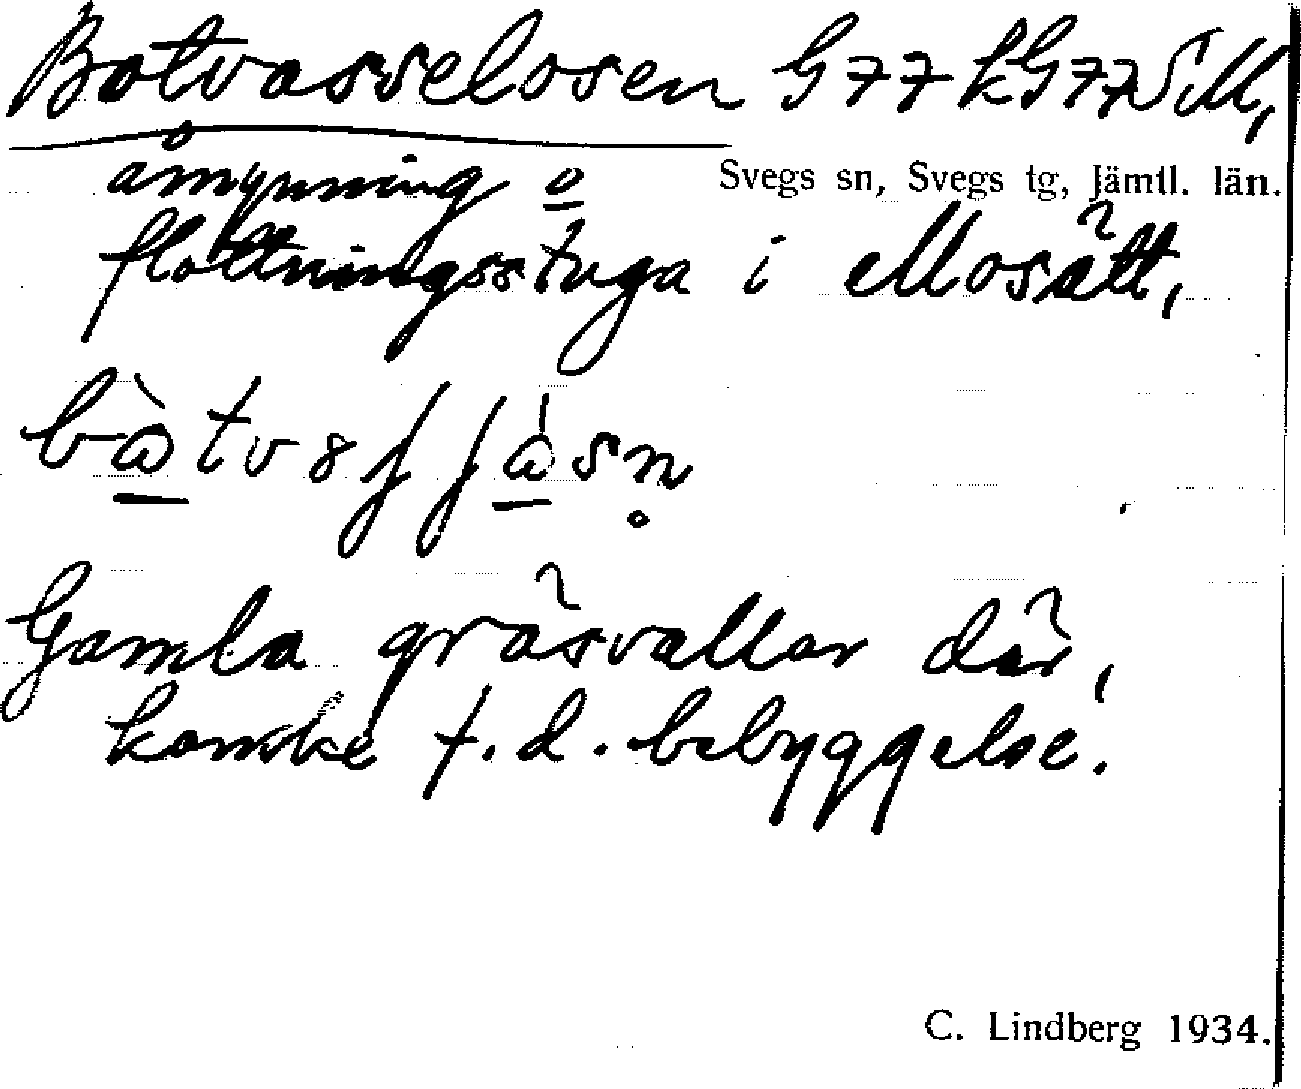 Botvasselosen G77 kG77 SM,
åmynning o
Svegs sn, Svegs tg, Jämtl. län.
flottningsstuga i Mosätt,
Gamla gräsvallar där,
kanske f.d. bebyggelse.
C. Lindberg 1934.